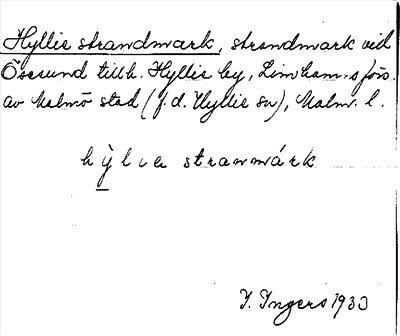 Hyllie strandmark, strandmark vid
Öresund tillh. Hyllie by, Limhamns förs.
av Malmö stad (f.d. Hyllie sn), Malm. l.
hỳlıa stranmárk
I. Ingers 1933